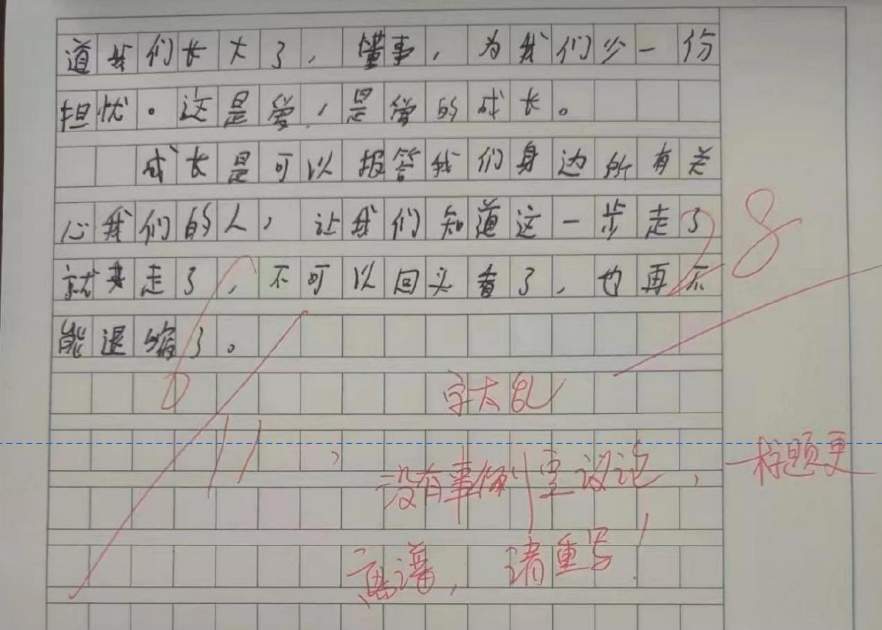 道我们长大了，懂事，为我们少一份
担忧。这是爱，是爱的成长。
成长是可以报答我们身边所有关
心我们的人，让我们知道这一步走了
就要走了，不可以回头看了，也再不
能退缩了。
28
字太乱
没有事例空议论，一标题更
离谱，请重写！